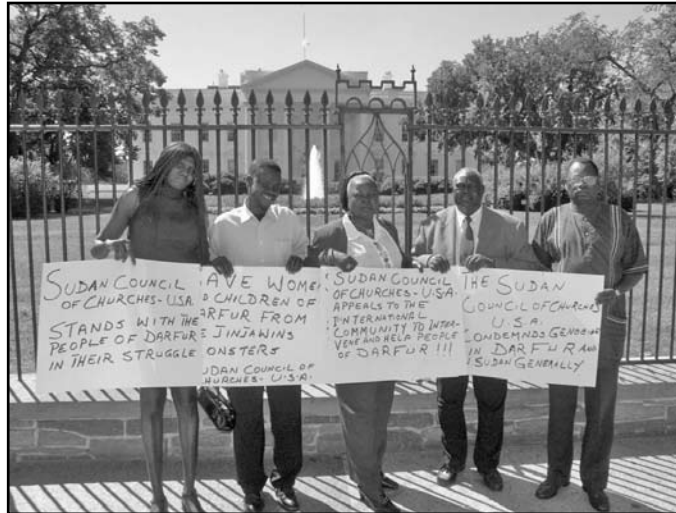 SUDAN COUNCIL
OF CHURCHES-USA.
STANDS WITH THE
PEOPLE OF DARFUR
IN THEIR STRUGGLE
AVE WOME
CHILDREN OF
ARFUR FROM
E JINJAWINS
ONSTERS
UDAN COUNCIL OF
HURCHES-U.S.A.
SUDAN COUNCIL
OF CHURCHES-U.S.A.
APPEALS TO THE
INTERNATIONAL
COMMUNITY TO INTER-
VENE AND HELP PEOPLE
OF DARFUR !!!
THE SUDAN
COUNCIL OF CHURCHES
U.S.A.
CONDEMNDS GENOCI
IN DARFUR AND
SUDAN GENERALLY